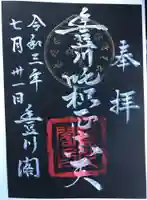 奉拝
豊川吒枳尼真天
令和三年
七月廿一日
豊川閣